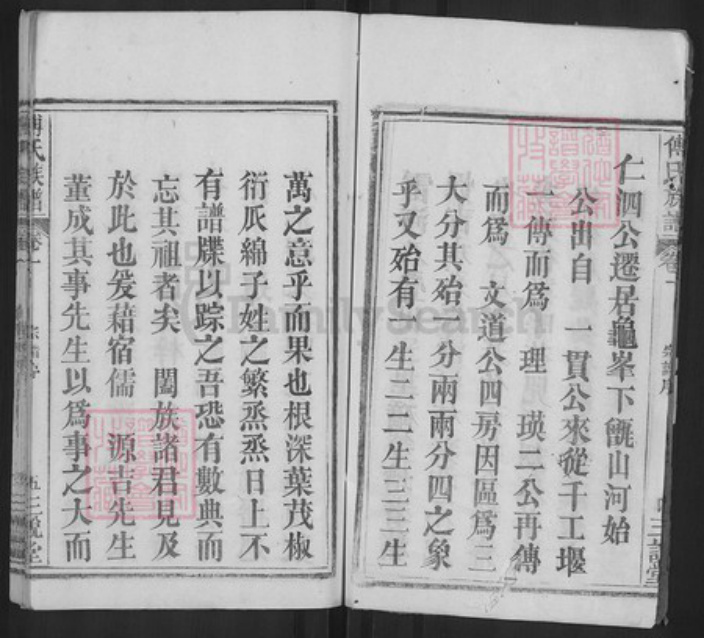 傅氏族譜
卷一
仁泗公遷居龜峯下甑山河始
公出自 一貫公來從千工堰
一傳而爲 理 瑛二公再傳
而爲 文道公四房因區爲三
大分其殆一分兩兩分四之象
乎又殆有一生二二生三三生
萬之意乎而果也根深葉茂椒
衍瓜綿子姓之繁烝烝日上不
有譜牒以踪之吾恐有數典而
忘其祖者矣 闔族諸君見及
於此也爰藉宿儒 源吉先生
董成其事先生以爲事之大而
傅氏族譜
卷一
FamilySearch